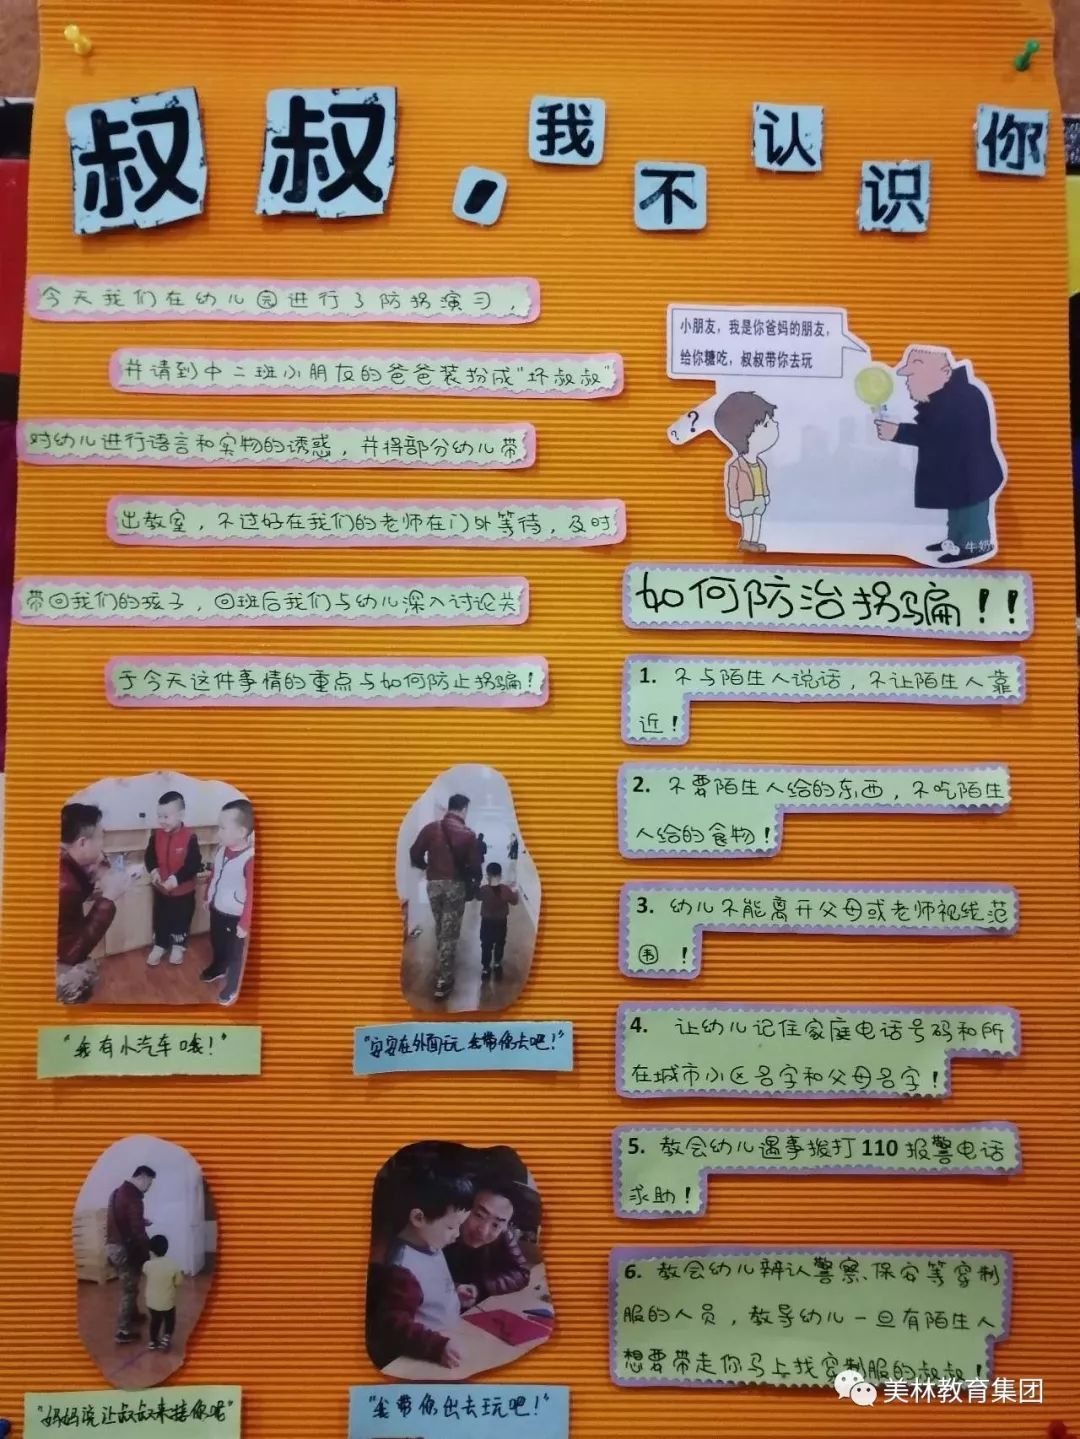 叔叔，我不认识你
今天我们在幼儿园进行了防拐演习，
并请到中二班小朋友的爸爸装扮成"坏叔叔"
对幼儿进行语言和实物的诱惑，并将部分幼儿带
出教室，不过好在我们的老师在门外等待，及时
带回我们的孩子，回班后我们与幼儿深入讨论关
于今天这件事情的重点与如何防止拐骗！
小朋友，我是你爸妈的朋友，
给你糖吃，叔叔带你去玩
? ?
牛奶
如何防治拐骗！！
1. 不与陌生人说话，不让陌生人靠
近！
2. 不要陌生人给的东西，不吃陌生
人给的食物！
3. 幼儿不能离开父母或老师视线范
围！
4. 让幼儿记住家庭电话号码和所
在城市小区名字和父母名字！
5. 教会幼儿遇事拨打110报警电话
求助！
6. 教会幼儿辨认警察、保安等穿制
服的人员，教导幼儿一旦有陌生人
想要带走你马上找穿制服的叔叔！
"我有小汽车哦！"
"安安在外面玩我带你去吧！"
"妈妈说让叔叔来接你呢"
"我带你出去玩吧！"
美林教育集团